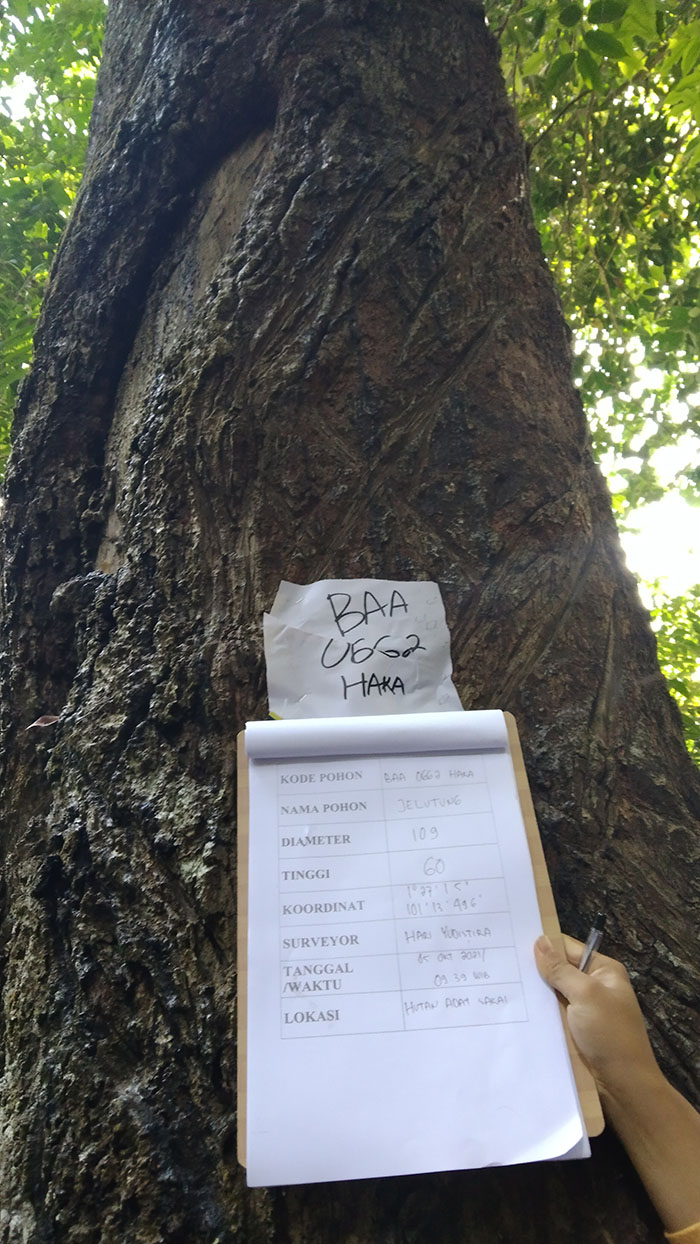 BAA
0662
HAKA
KODE POHON BAA 0662 HAKA
NAMA POHON JELUTUNG
DIAMETER 109
TINGGI 60
KOORDINAT 1° 27' 1 5"
101° 13' 49 6"
SURVEYOR HARI YUDISTIRA
TANGGAL 05 OKT 2021/
/WAKTU 09.39 WIB
LOKASI HUTAN ADAT SAKAI